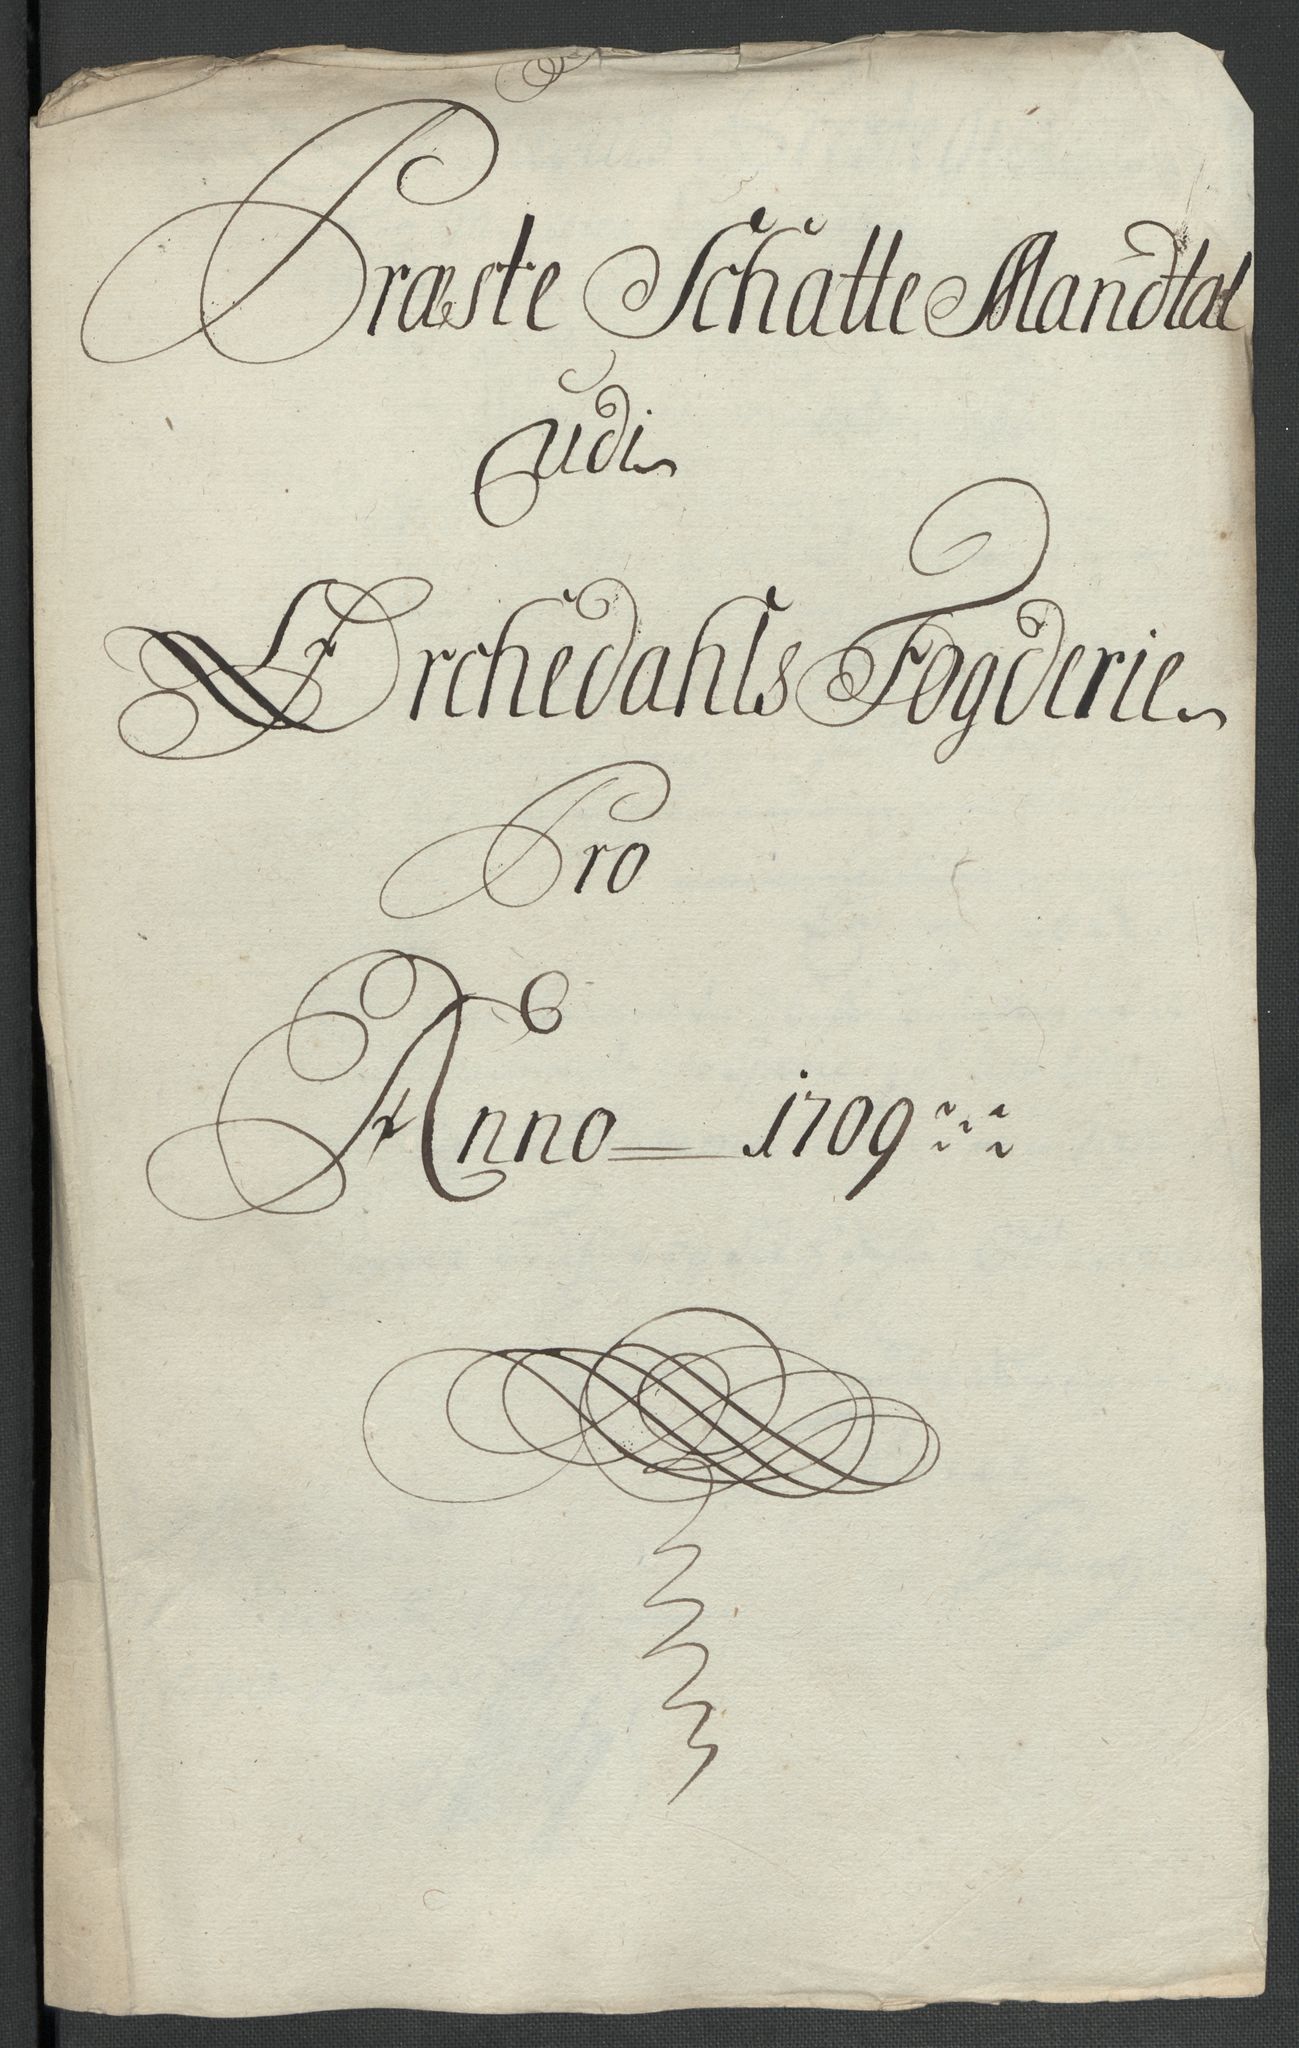 Præste Schatte Mandtal
udi
Orchedahls Fogderie
Pro
Anno 1709